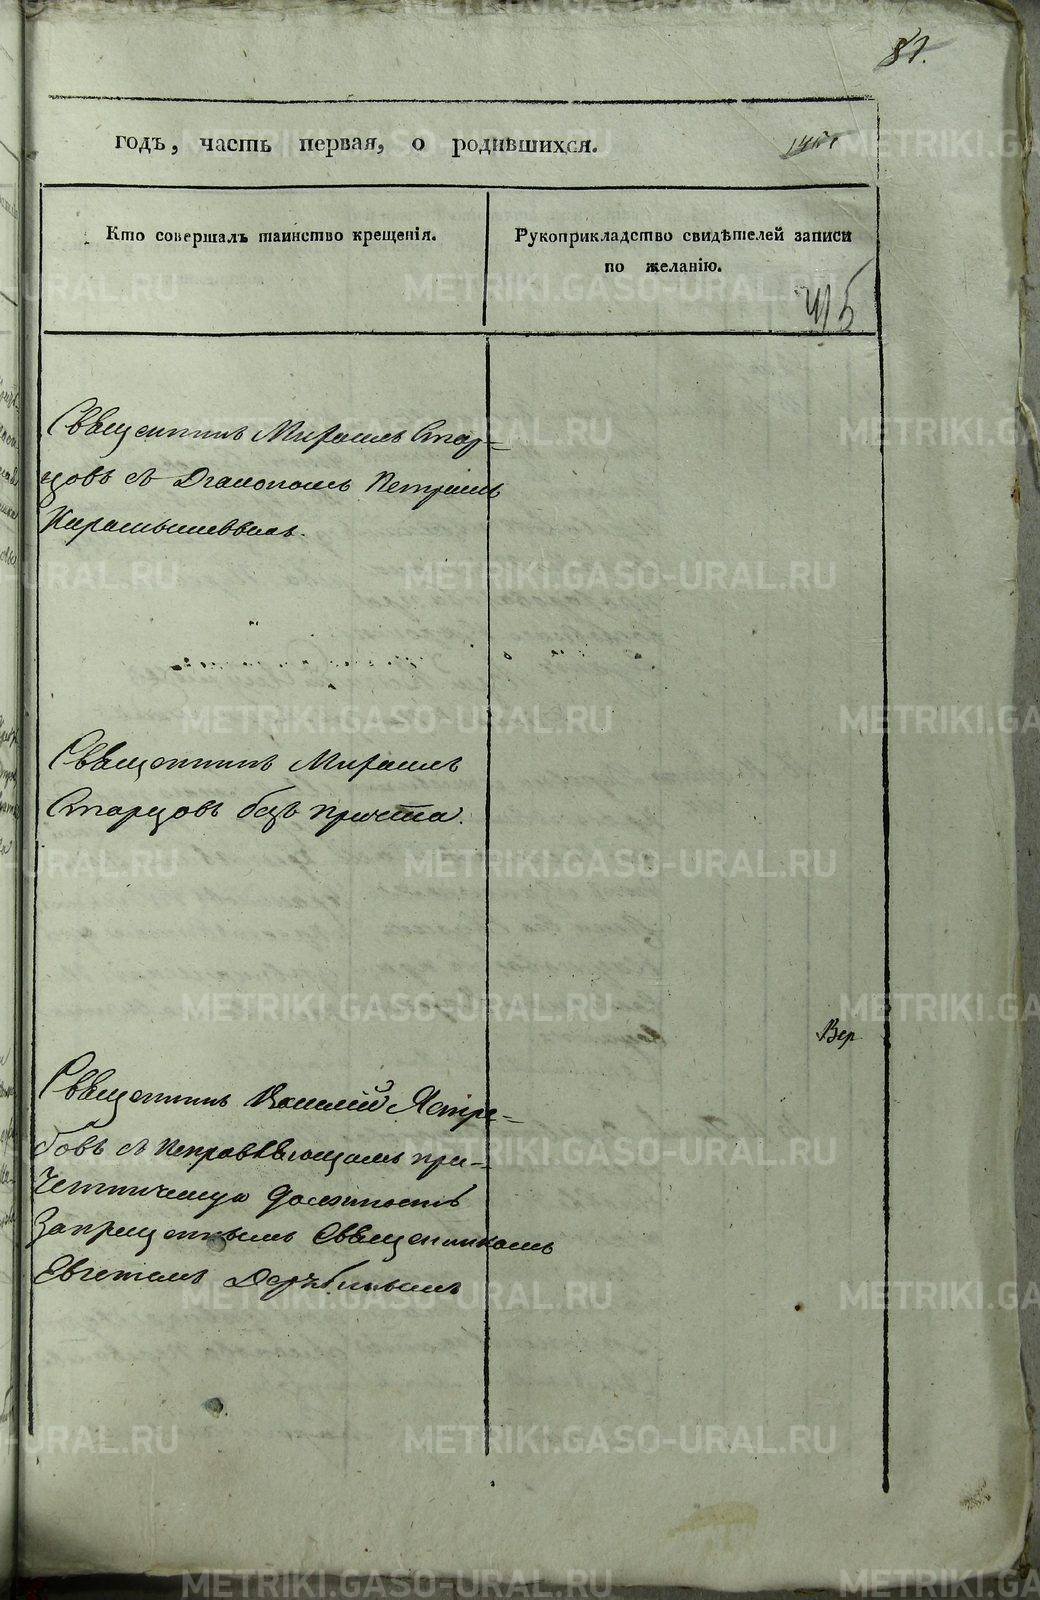 87.
годъ, часть первая, о родившихся.
Кто совершалъ таинство крещенія.
Рукоприкладство свидѣтелей записи
по желанію.
415
Священникъ Михаилъ Стар-
цовъ съ Діакономъ Петромъ
Карамышевымъ.
Священникъ Михаилъ
Старцовъ безъ причта.
Вер
Священникъ Василій Ястре-
бовъ съ исправляющимъ при-
четническую должность
Запрещеннымъ Священникомъ
Евгеніемъ
METRIKI.GASO-URAL.RU